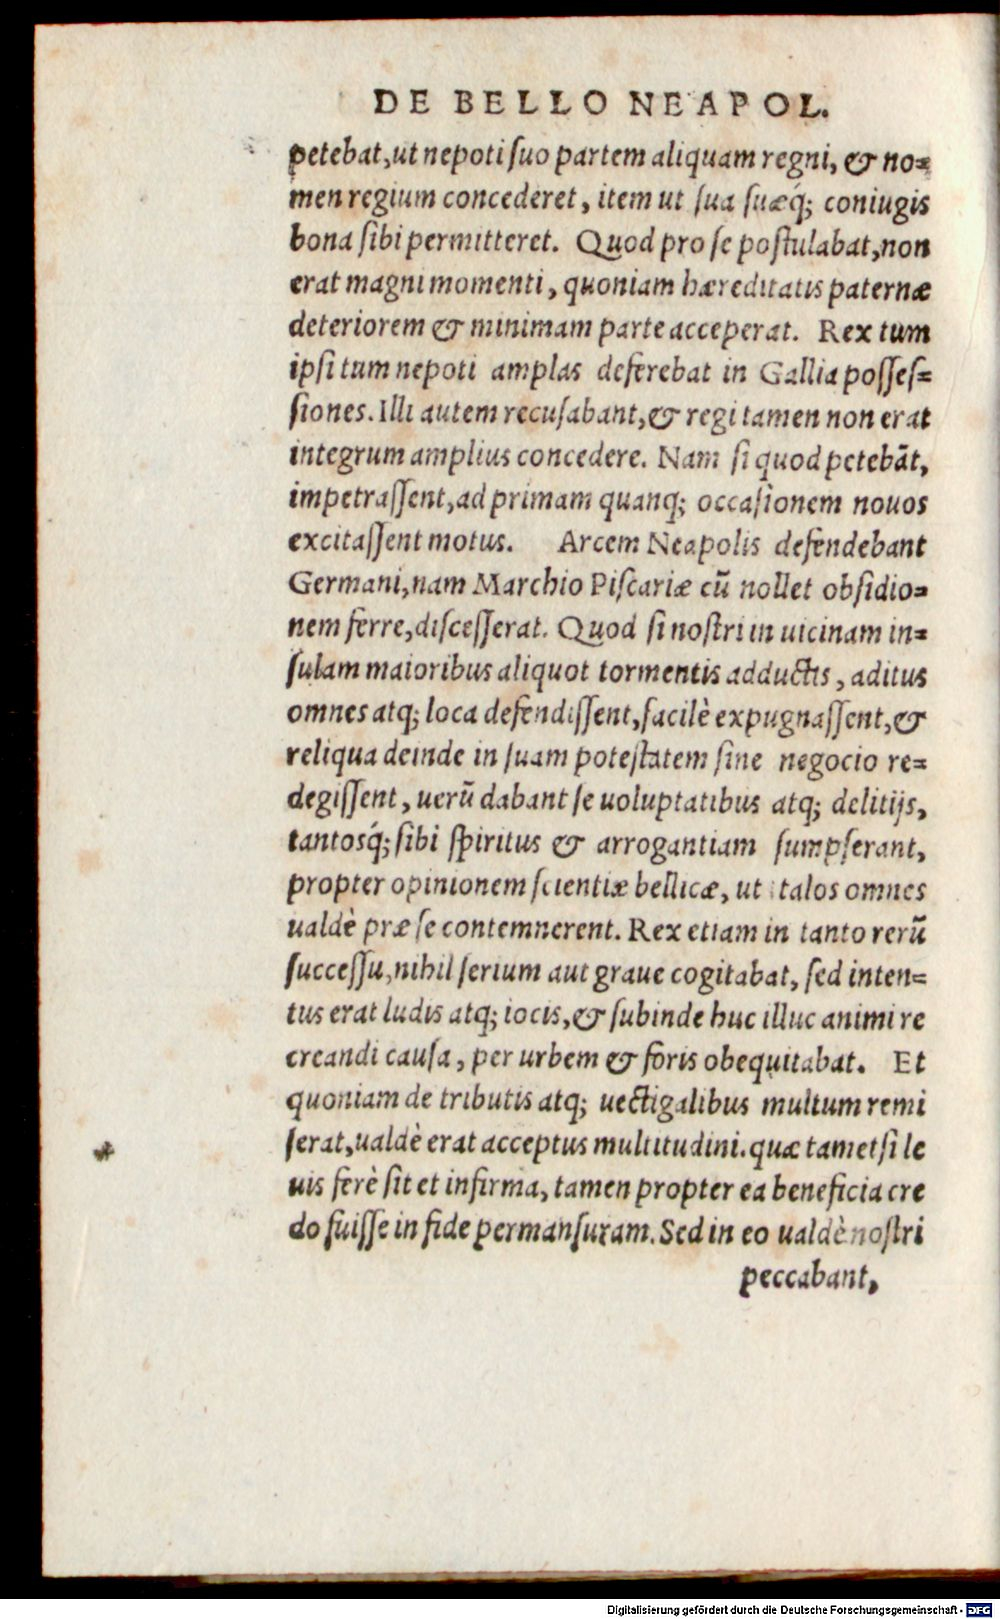 DE BELLO NEAPOL.
petebat, ut nepoti ſuo partem aliquam regni, & no=
men regium concederet, item ut ſua ſuæq́; coniugis
bona ſibi permitteret. Quod pro ſe poſtulabat, non
erat magni momenti, quoniam hæreditatis paternæ
deteriorem & minimam parte acceperat. Rex tum
ipſi tum nepoti amplas deferebat in Gallia poſſeſ=
ſiones. Illi autem recuſabant, & regi tamen non erat
integrum amplius concedere. Nam ſi quod petebãt,
impetraſſent, ad primam quanq; occaſionem nouos
excitaſſent motus. Arcem Neapolis defendebant
Germani, nam Marchio Piſcariæ cũ nollet obſidio=
nem ferre, diſceſſerat. Quod ſi noſtri in uicinam in=
ſulam maioribus aliquot tormentis adductis, aditus
omnes atq; loca defendiſſent, facilè expugnaſſent, &
reliqua deinde in ſuam poteſtatem ſine negocio re=
degiſſent, uerũ dabant ſe uoluptatibus atq; delitijs,
tantosq́; ſibi ſpiritus & arrogantiam ſumpſerant,
propter opinionem ſcientiæ bellicæ, ut italos omnes
ualdè præ ſe contemnerent. Rex etiam in tanto rerũ
ſucceſſu, nihil ſerium aut graue cogitabat, ſed inten=
tus erat ludis atq; iocis, & ſubinde huc illuc animi re
creandi cauſa, per urbem & foris obequitabat. Et
quoniam de tributis atq; uectigalibus multum remi
ſerat, ualdè erat acceptus multitudini. quæ tametſi le
uis ferè ſit et infirma, tamen propter ea beneficia cre
do fuiſſe in fide permanſuram. Sed in eo ualdè noſtri
peccabant,
Digitalisierung gefördert durch die Deutsche Forschungsgemeinschaft - DFG